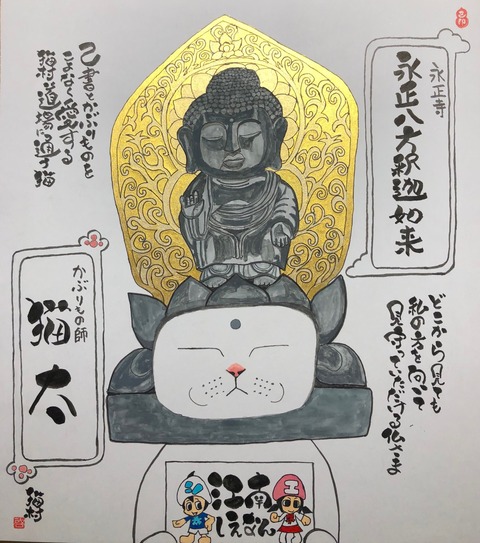 永正寺
永正八方釈迦如来
どこから見ても
私の方を向いて
見守っていただける仏さま
己書とかぶりものを
こよなく愛する
猫村道場に通う猫
かぶりもの師
猫太
猫村
江南
しえなん
エ